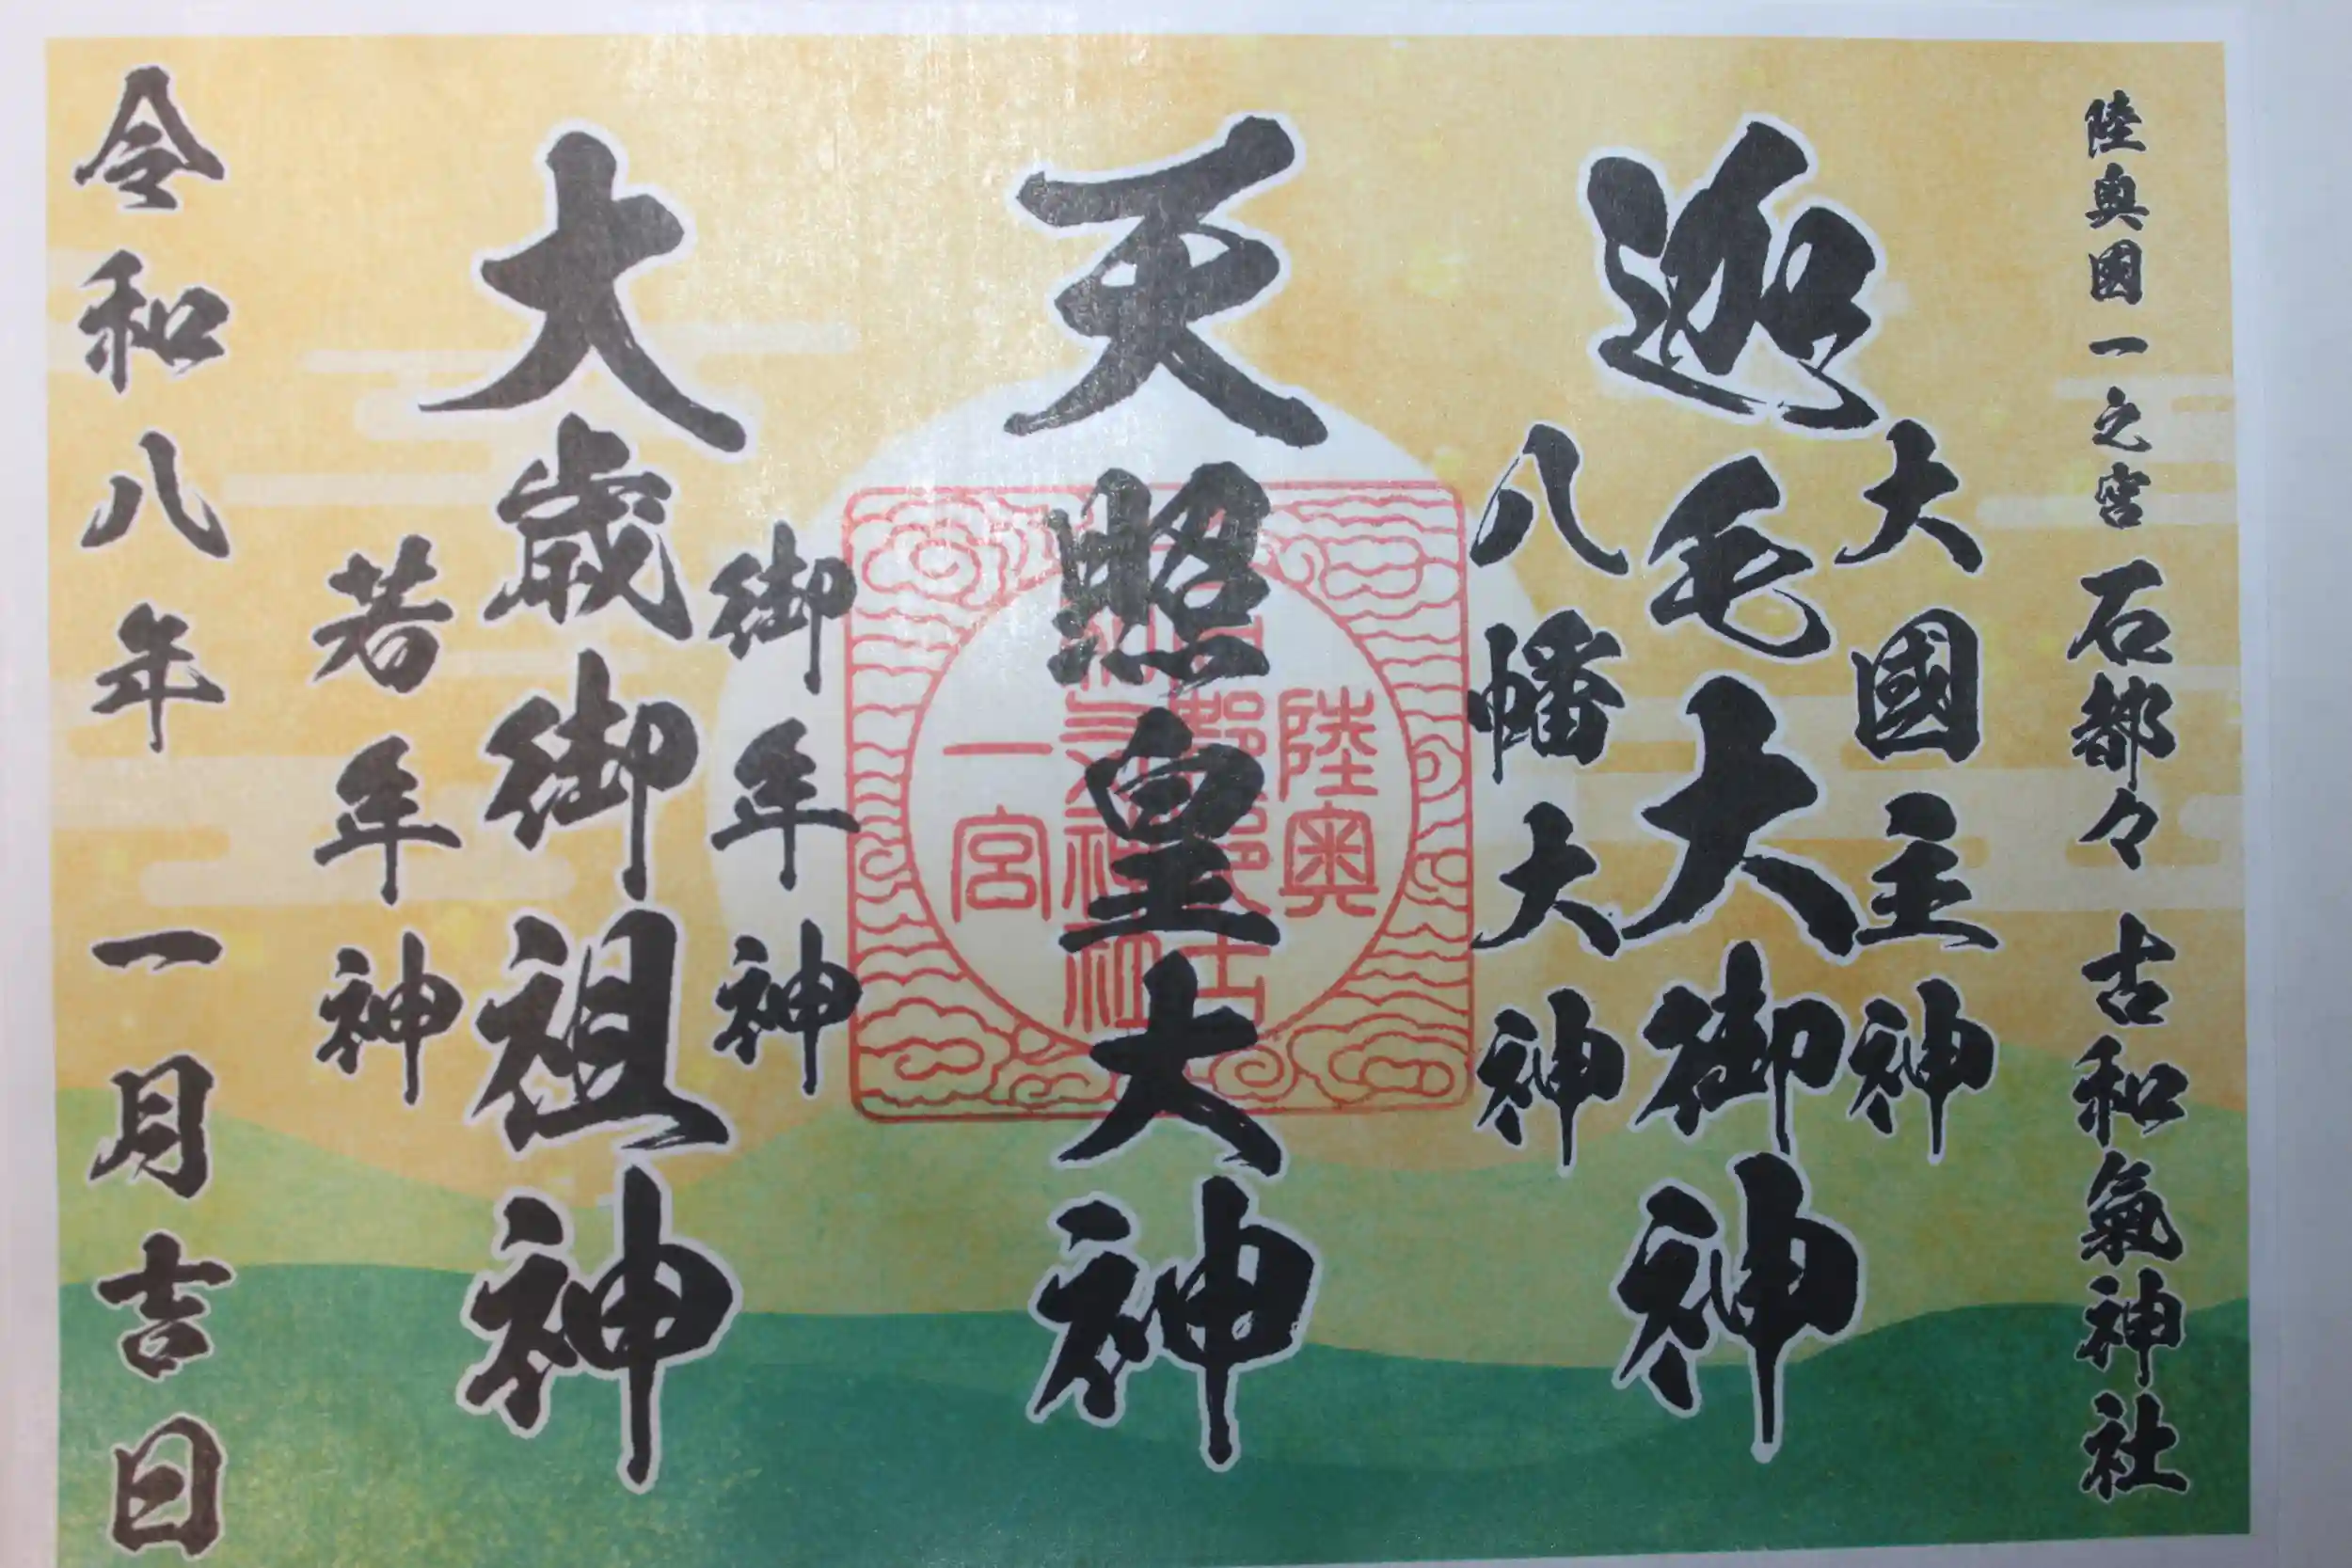 陸奥國一之宮 石都々古和氣神社
大國主神
迦毛大御神
八幡大神
天照皇大神
御年神
大歳御祖神
若年神
令和八年 一月吉日
陸奥
一宮